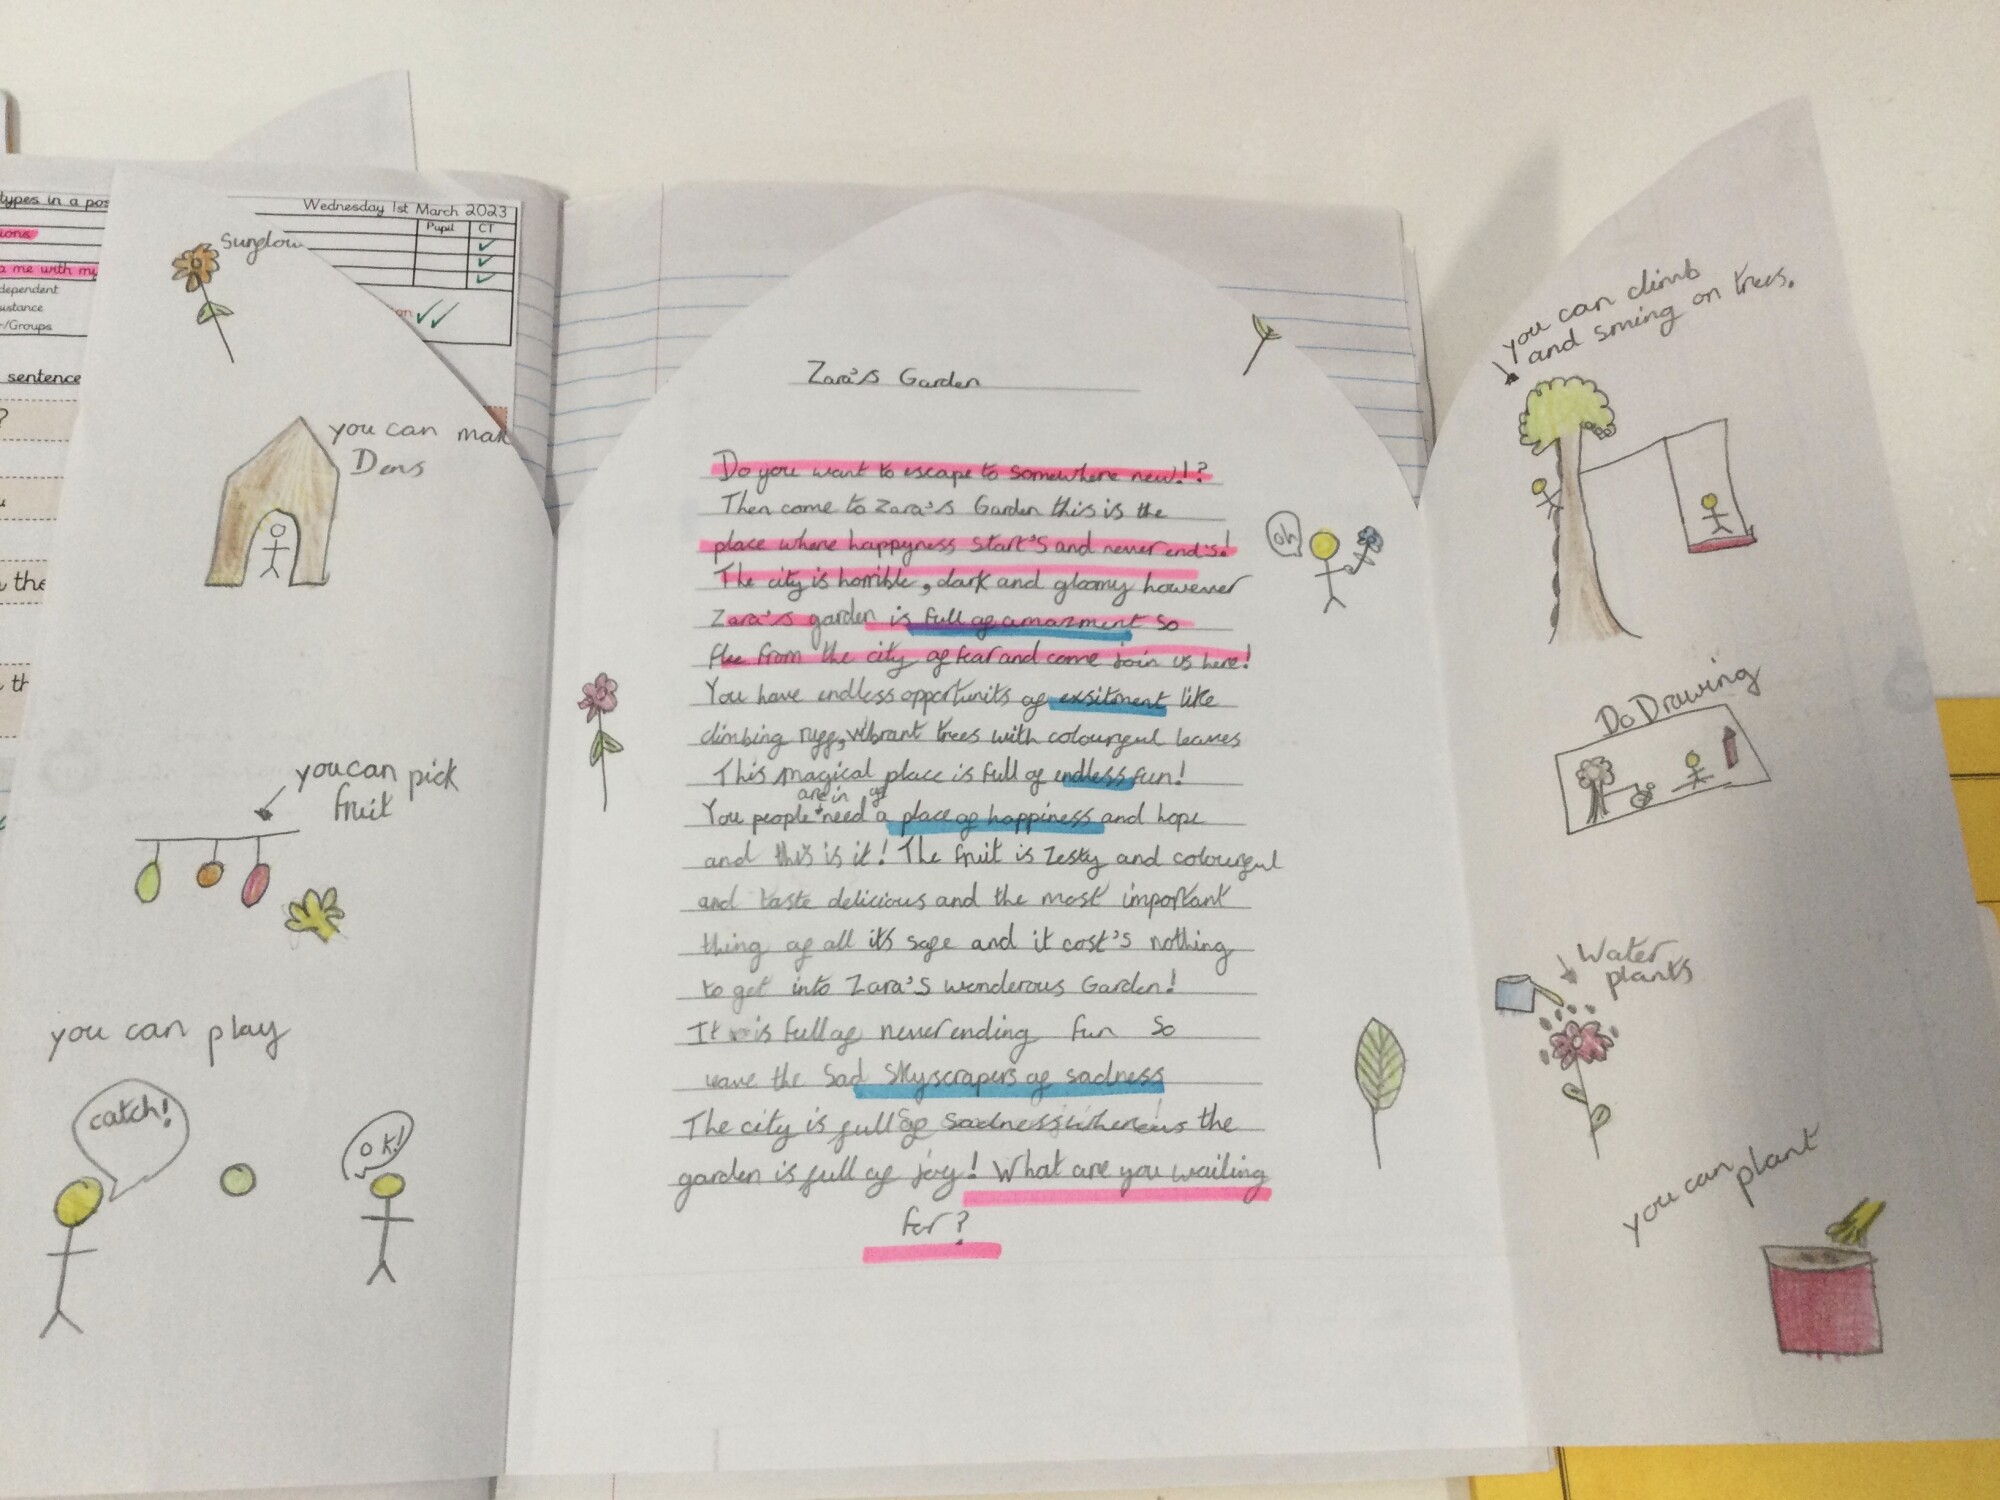 types in a pos
ions
p me with my
dependent
istance
-/Groups
sentence
?
n the
Wednesday 1st March 2023
Pupil CT
on
Sunflow
you can mak
Dens
you can pick
fruit
you can play
catch!
OK!
Zara's Garden
Do you want to escape to somewhere new!?
Then come to Zara's Garden this is the
place where happyness start's and never end's!
The city is horrible, dark and gloomy however
Zara's garden is full of amazment so
flee from the city of fear and come join us here!
You have endless opportunits of exsitment like
climbing rigg, vibrant trees with colourful leaves
This magical place is full of endless fun!
are in of
You people need a place of happiness and hope
and this is it! The fruit is zesty and colourful
and taste delicious and the most important
thing of all it's safe and it cost's nothing
to get into Zara's wonderous Garden!
It is full of never ending fun so
leave the sad Skyscrapers of sadness
The city is full of sadness whereas the
garden is full of joy! What are you waiting
for?
oh
you can climb
and swing on trees.
Do Drawing
Water
plants
you can plant